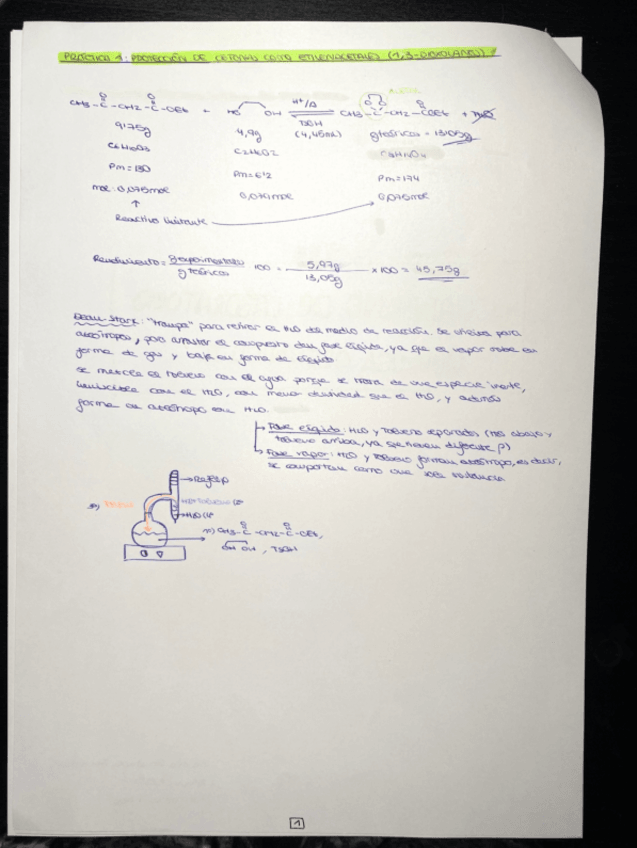 PRÁCTICA 1: PROTECCIÓN DE CETONAS COMO ETILENACETALES (1,3-DIOXOLANOS).
CH3-C-CH2-C-OEt + HO OH H+/Δ CH3-C-CH2-COEt + H2O
TsOH
9,75g 4,9g (4,45mL) g teóricos = 13,05g
C6H10O3 C2H6O2
Pm=130 Pm=62 Pm=174
mol: 0,075mol 0,079mol 0,075mol
Reactivo limitante
Rendimiento = g experimentales / g teóricos 100 = 5,97g / 13,05g × 100 = 45,75g
Dean-Stark: "trampa" para retirar el H2O del medio de reacción. Se utiliza para
azeótropos, para arrastrar el compuesto den fase líquida, ya que el vapor sube en
forma de gas y baja en forma de líquido
Se mezcla el tolueno con el agua porque se trata de una especie inerte,
inmiscible con el H2O, con menor densidad que el H2O, y además
forma un azeótropo con H2O.
Fase líquida: H2O y tolueno separados (H2O abajo y
tolueno arriba, ya que tienen diferente ρ)
Fase vapor: H2O y tolueno forman azeótropo, es decir,
se comportan como una sola sustancia
Reflujo
H2O
1º) CH3-C-CH2-C-OEt,
OH OH, TsOH
1